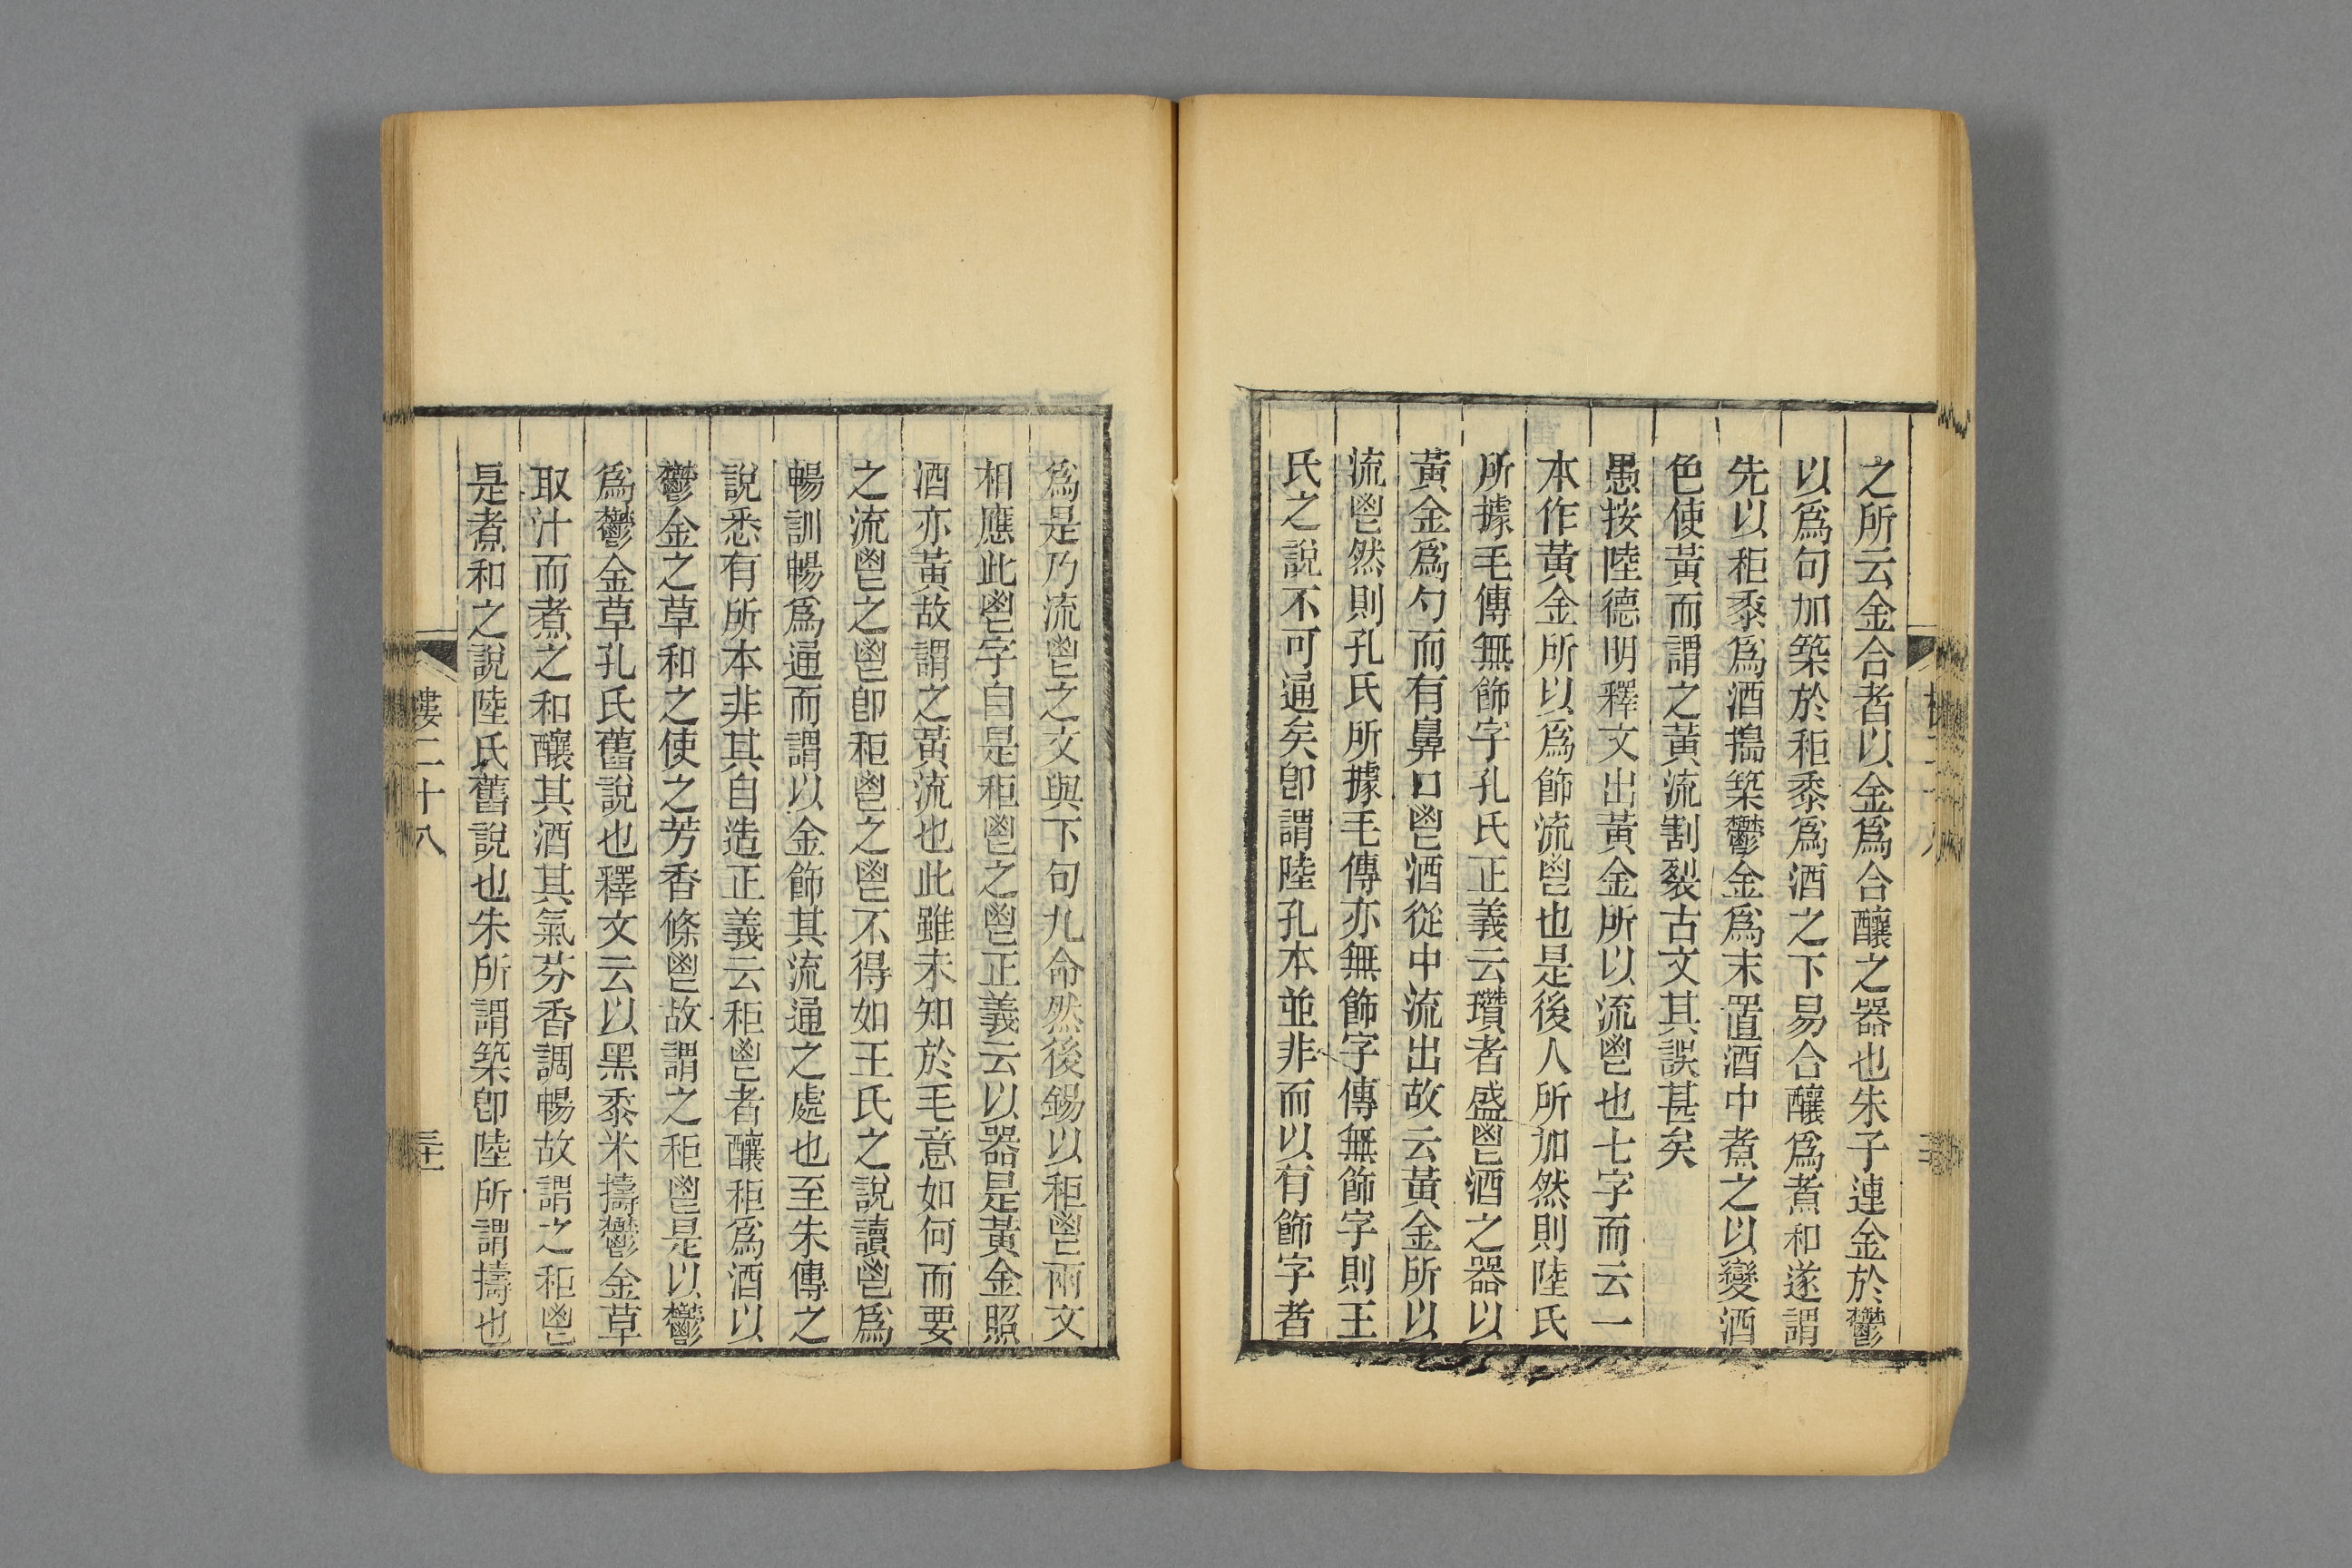 之所云金合者以金爲合釀之器也朱子連金於鬱
以爲句加築於秬黍爲酒之下易合釀爲煮和遂謂
先以秬黍爲酒搗築鬱金爲末置酒中煮之以變酒
色使黃而謂之黃流割裂古文其誤甚矣
愚按陸德明釋文出黃金所以流鬯也七字而云一
本作黃金所以爲飾流鬯也是後人所加然則陸氏
所據毛傳無飾字孔氏正義云瓚者盛鬯酒之器以
黃金爲勺而有鼻口鬯酒從中流出故云黃金所以
流鬯然則孔氏所據毛傳亦無飾字傳無飾字則王
氏之說不可通矣卽謂陸孔本並非而以有飾字者
爲是乃流鬯之文與下句九命然後錫以秬鬯兩文
相應此鬯字自是秬鬯之鬯正義云以器是黃金照
酒亦黃故謂之黃流也此雖未知於毛意如何而要
之流鬯之鬯卽秬鬯之鬯不得如王氏之說讀鬯爲
暢訓暢爲通而謂以金飾其流通之處也至朱傳之
說悉有所本非其自造正義云秬鬯者釀秬爲酒以
鬱金之草和之使之芳香條鬯故謂之秬鬯是以鬱
爲鬱金草孔氏舊說也釋文云以黑黍米擣鬱金草
取汁而煮之和釀其酒其氣芬香調暢故謂之秬鬯
是煮和之說陸氏舊說也朱所謂築卽陸所謂擣也
樓二十八